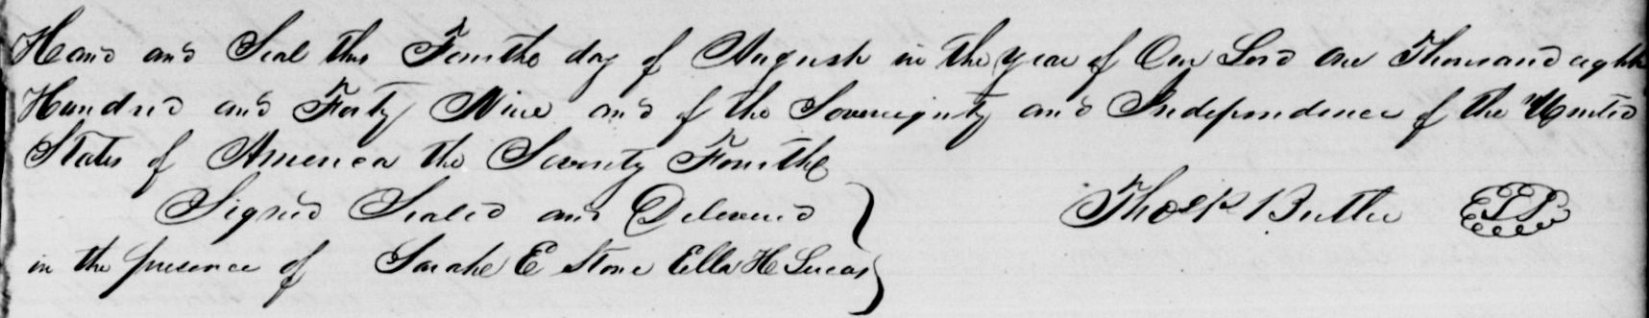 Hand and Seal this Fourth day of August in the year of Our Lord One Thousand eight
Hundred and Forty Nine and of the Sovereignty and Independence of the United
States of America the Seventy Fourth
Signed Sealed and Delivered } Thos P Butler
in the presence of Sarah E Stone Ella H Lucas }